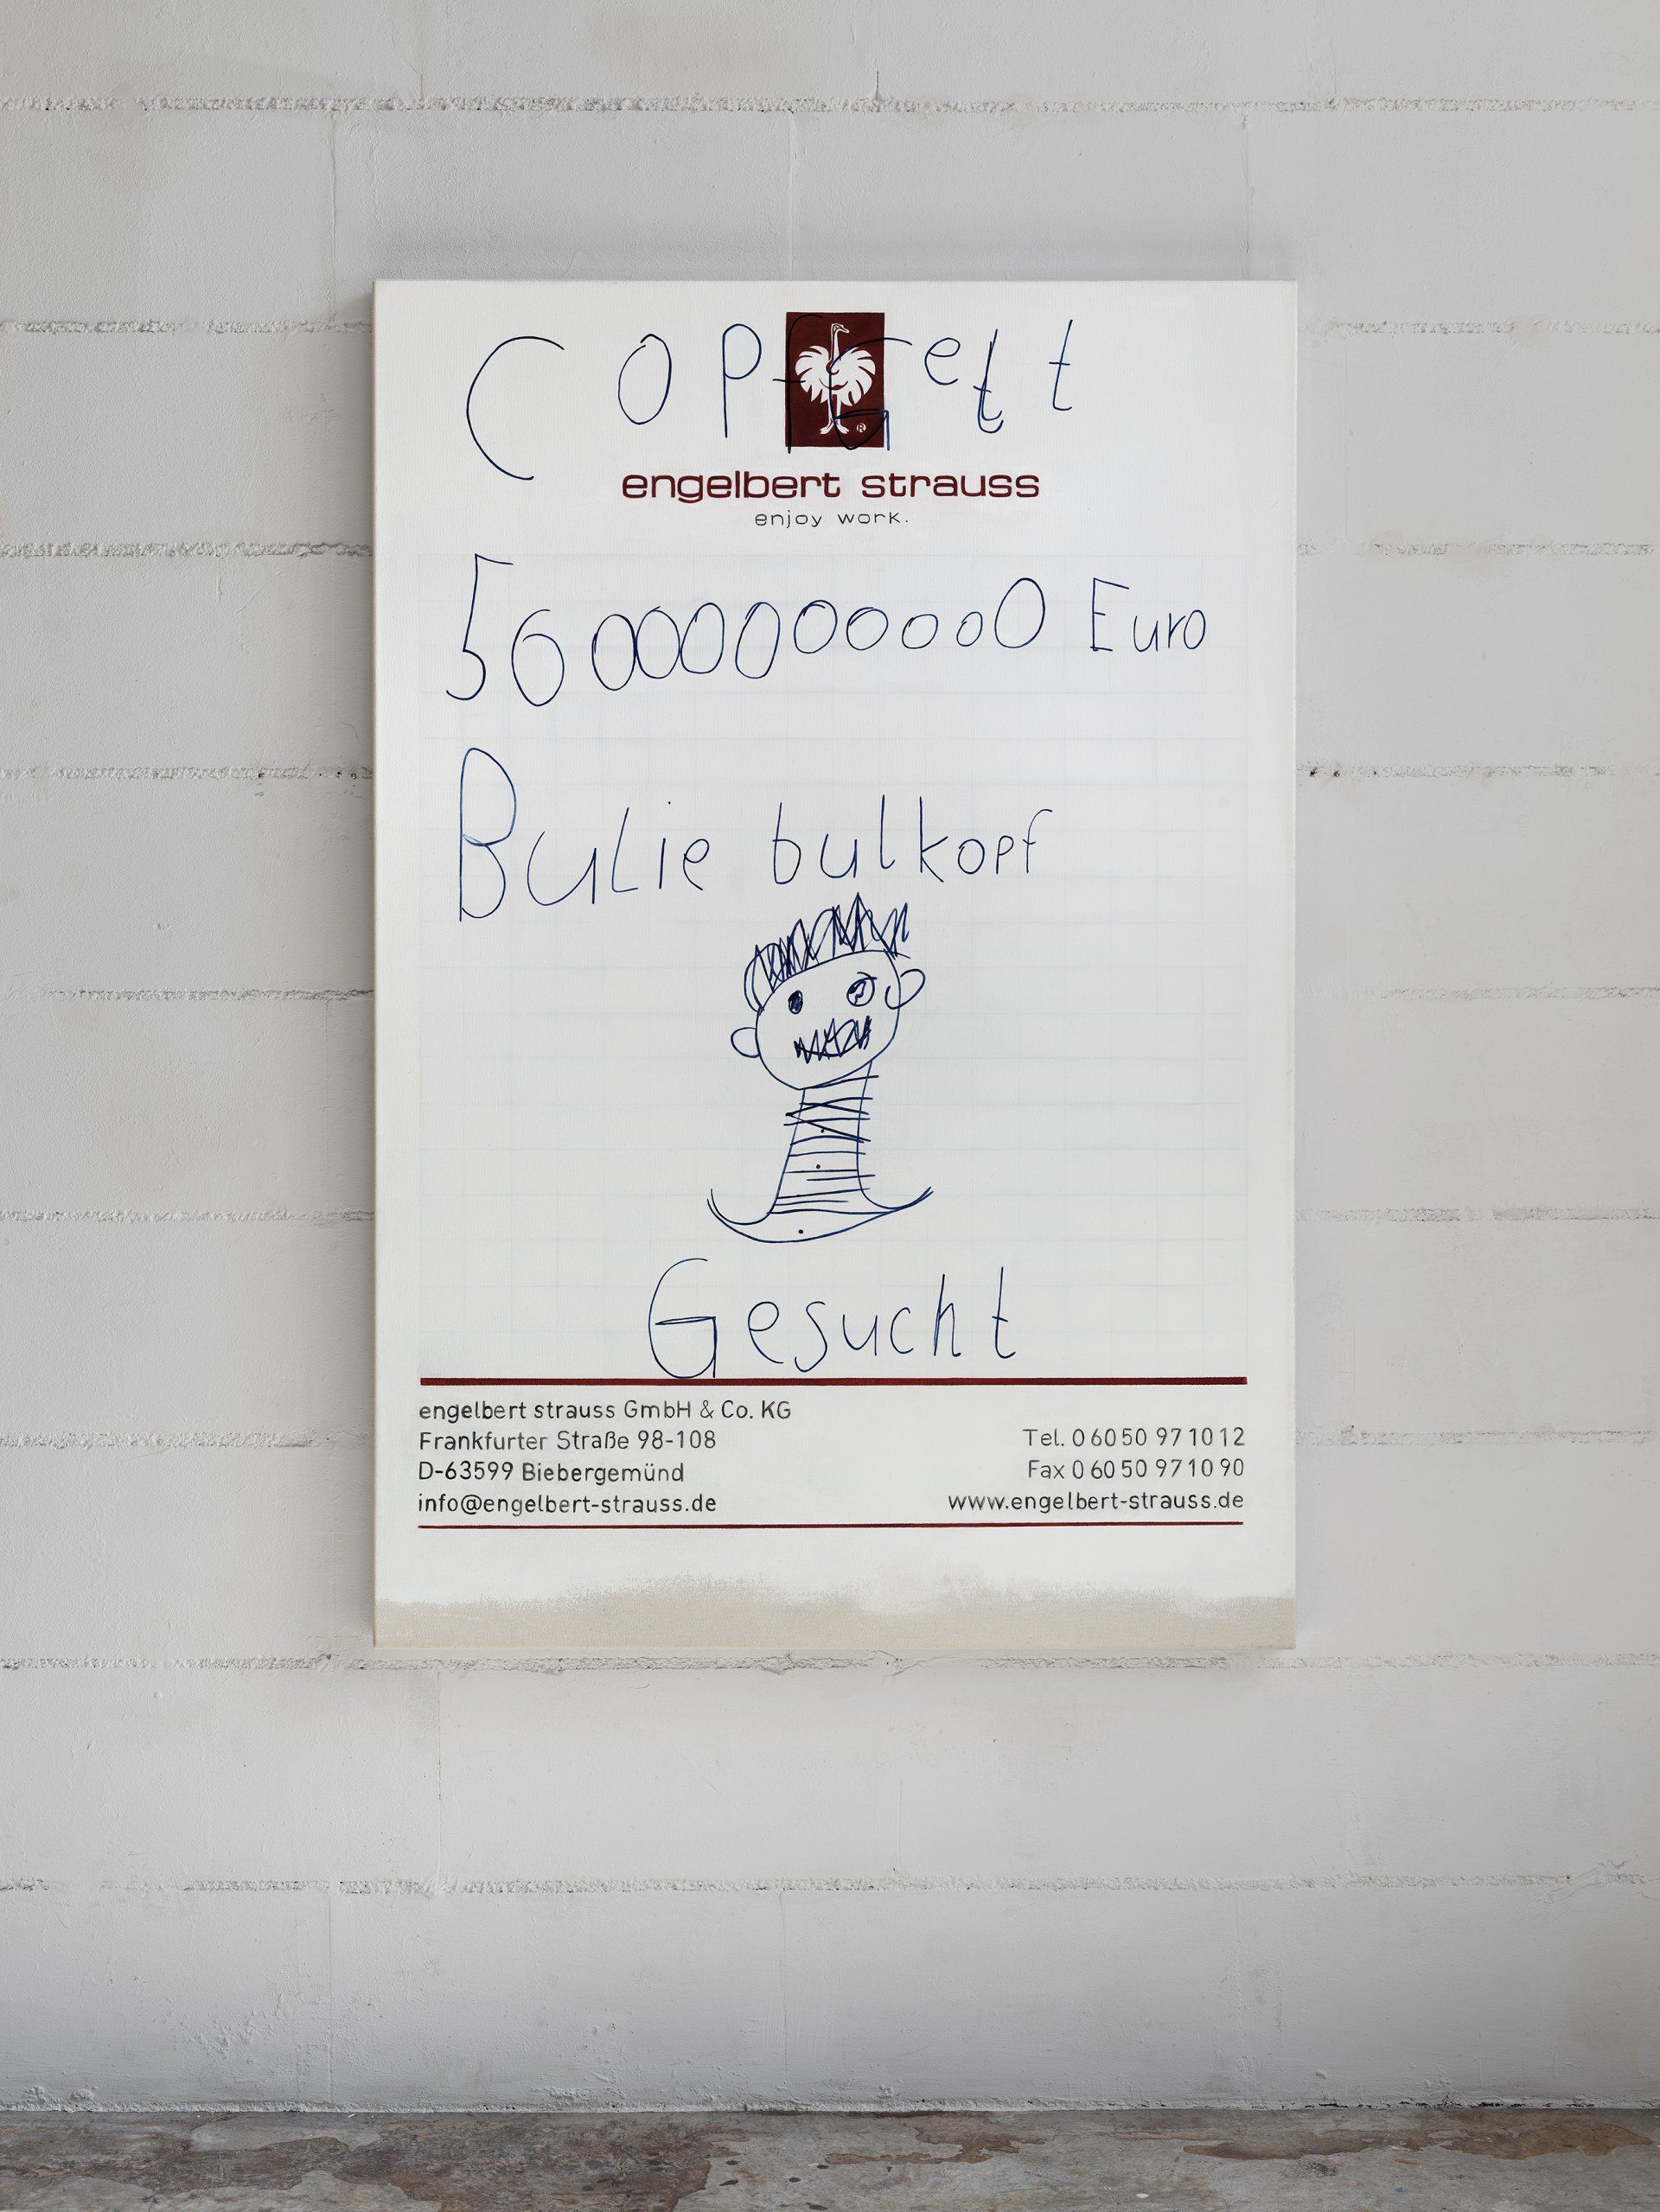 CopfGelt
®
engelbert strauss
enjoy work.
500000000000 Euro
Bulie bulkopf
Gesucht
engelbert strauss GmbH & Co. KG
Frankfurter Straße 98-108
D-63599 Biebergemünd
info@engelbert-strauss.de
Tel. 0 60 50 97 10 12
Fax 0 60 50 97 10 90
www.engelbert-strauss.de